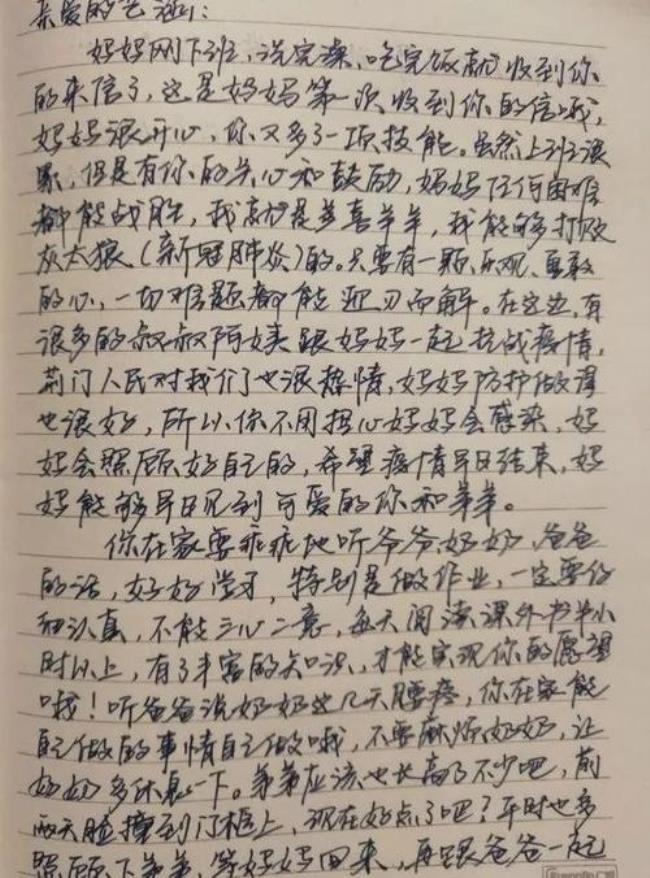 亲爱的芝涵:
妈妈刚下班,洗完澡,吃完饭就收到你
的来信了,这是妈妈第一次收到你的信哦,
妈妈很开心,你又多了一项技能。虽然上班很
累,但是有你的关心和鼓励,妈妈任何困难
都能战胜,我就是美喜羊羊,我能够打败
灰太狼(新冠肺炎)的。只要有一颗乐观、勇敢
的心,一切难题都能迎刃而解。在这边,有
很多的叔叔阿姨跟妈妈一起抗战疫情,
荆门人民对我们也很热情,妈妈防护做得
也很好,所以你不用担心妈妈会感染,妈
妈会照顾好自己的,希望疫情早日结束,妈
妈能够早日见到可爱的你和弟弟。
你在家要乖乖地听爷爷、奶奶、爸爸
的话,好好学习,特别是做作业,一定要仔
细认真,不能三心二意,每天阅读课外书半小
时以上,有了丰富的知识,才能实现你的愿望
哦!听爸爸说奶奶这几天腰疼,你在家能
自己做的事情自己做哦,不要麻烦奶奶,让
奶奶多休息一下。弟弟应该也长高了不少吧,前
两天脸撞到门框上,现在好点了吧?平时也多
照顾下弟弟,等妈妈回来,再跟爸爸一起